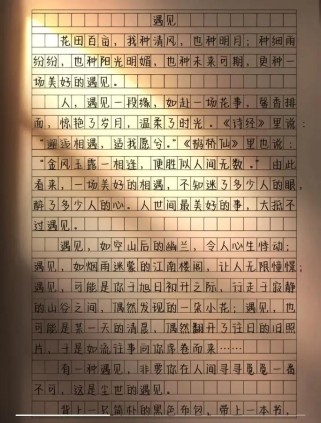 遇见
花田百亩，我种清风，也种明月；种细雨
纷纷，也种阳光明媚，也种未来可期，更种一
场美好的遇见。
人，遇见一段缘，如赴一场花事，馨香排
面，惊艳了岁月，温柔了时光。《诗经》里说：
“邂逅相遇，适我愿兮。”《鹊桥仙》里也说：
“金风玉露一相逢，便胜似人间无数。”由此
看来，一场美好的相遇，不知迷了多少人的眼，
醉了多少人的心。人世间最美好的事，大抵不
过遇见。
遇见，如空山后的幽兰，令人心生悸动；
遇见，如烟雨迷蒙的江南楼阁，让人无限憧憬；
遇见，可能是你于旭日初升之际，行走于寂静
的山谷之间，偶然发现的一朵小花；遇见，也
可能是某一天的清晨，偶然翻开了往日的旧照
片，于是如流往事向你席卷而来……
有一种遇见，非要你在人间寻寻觅觅一番
不可，这是尘世的遇见。
背上一只简朴的黑色布包，带上一本书，